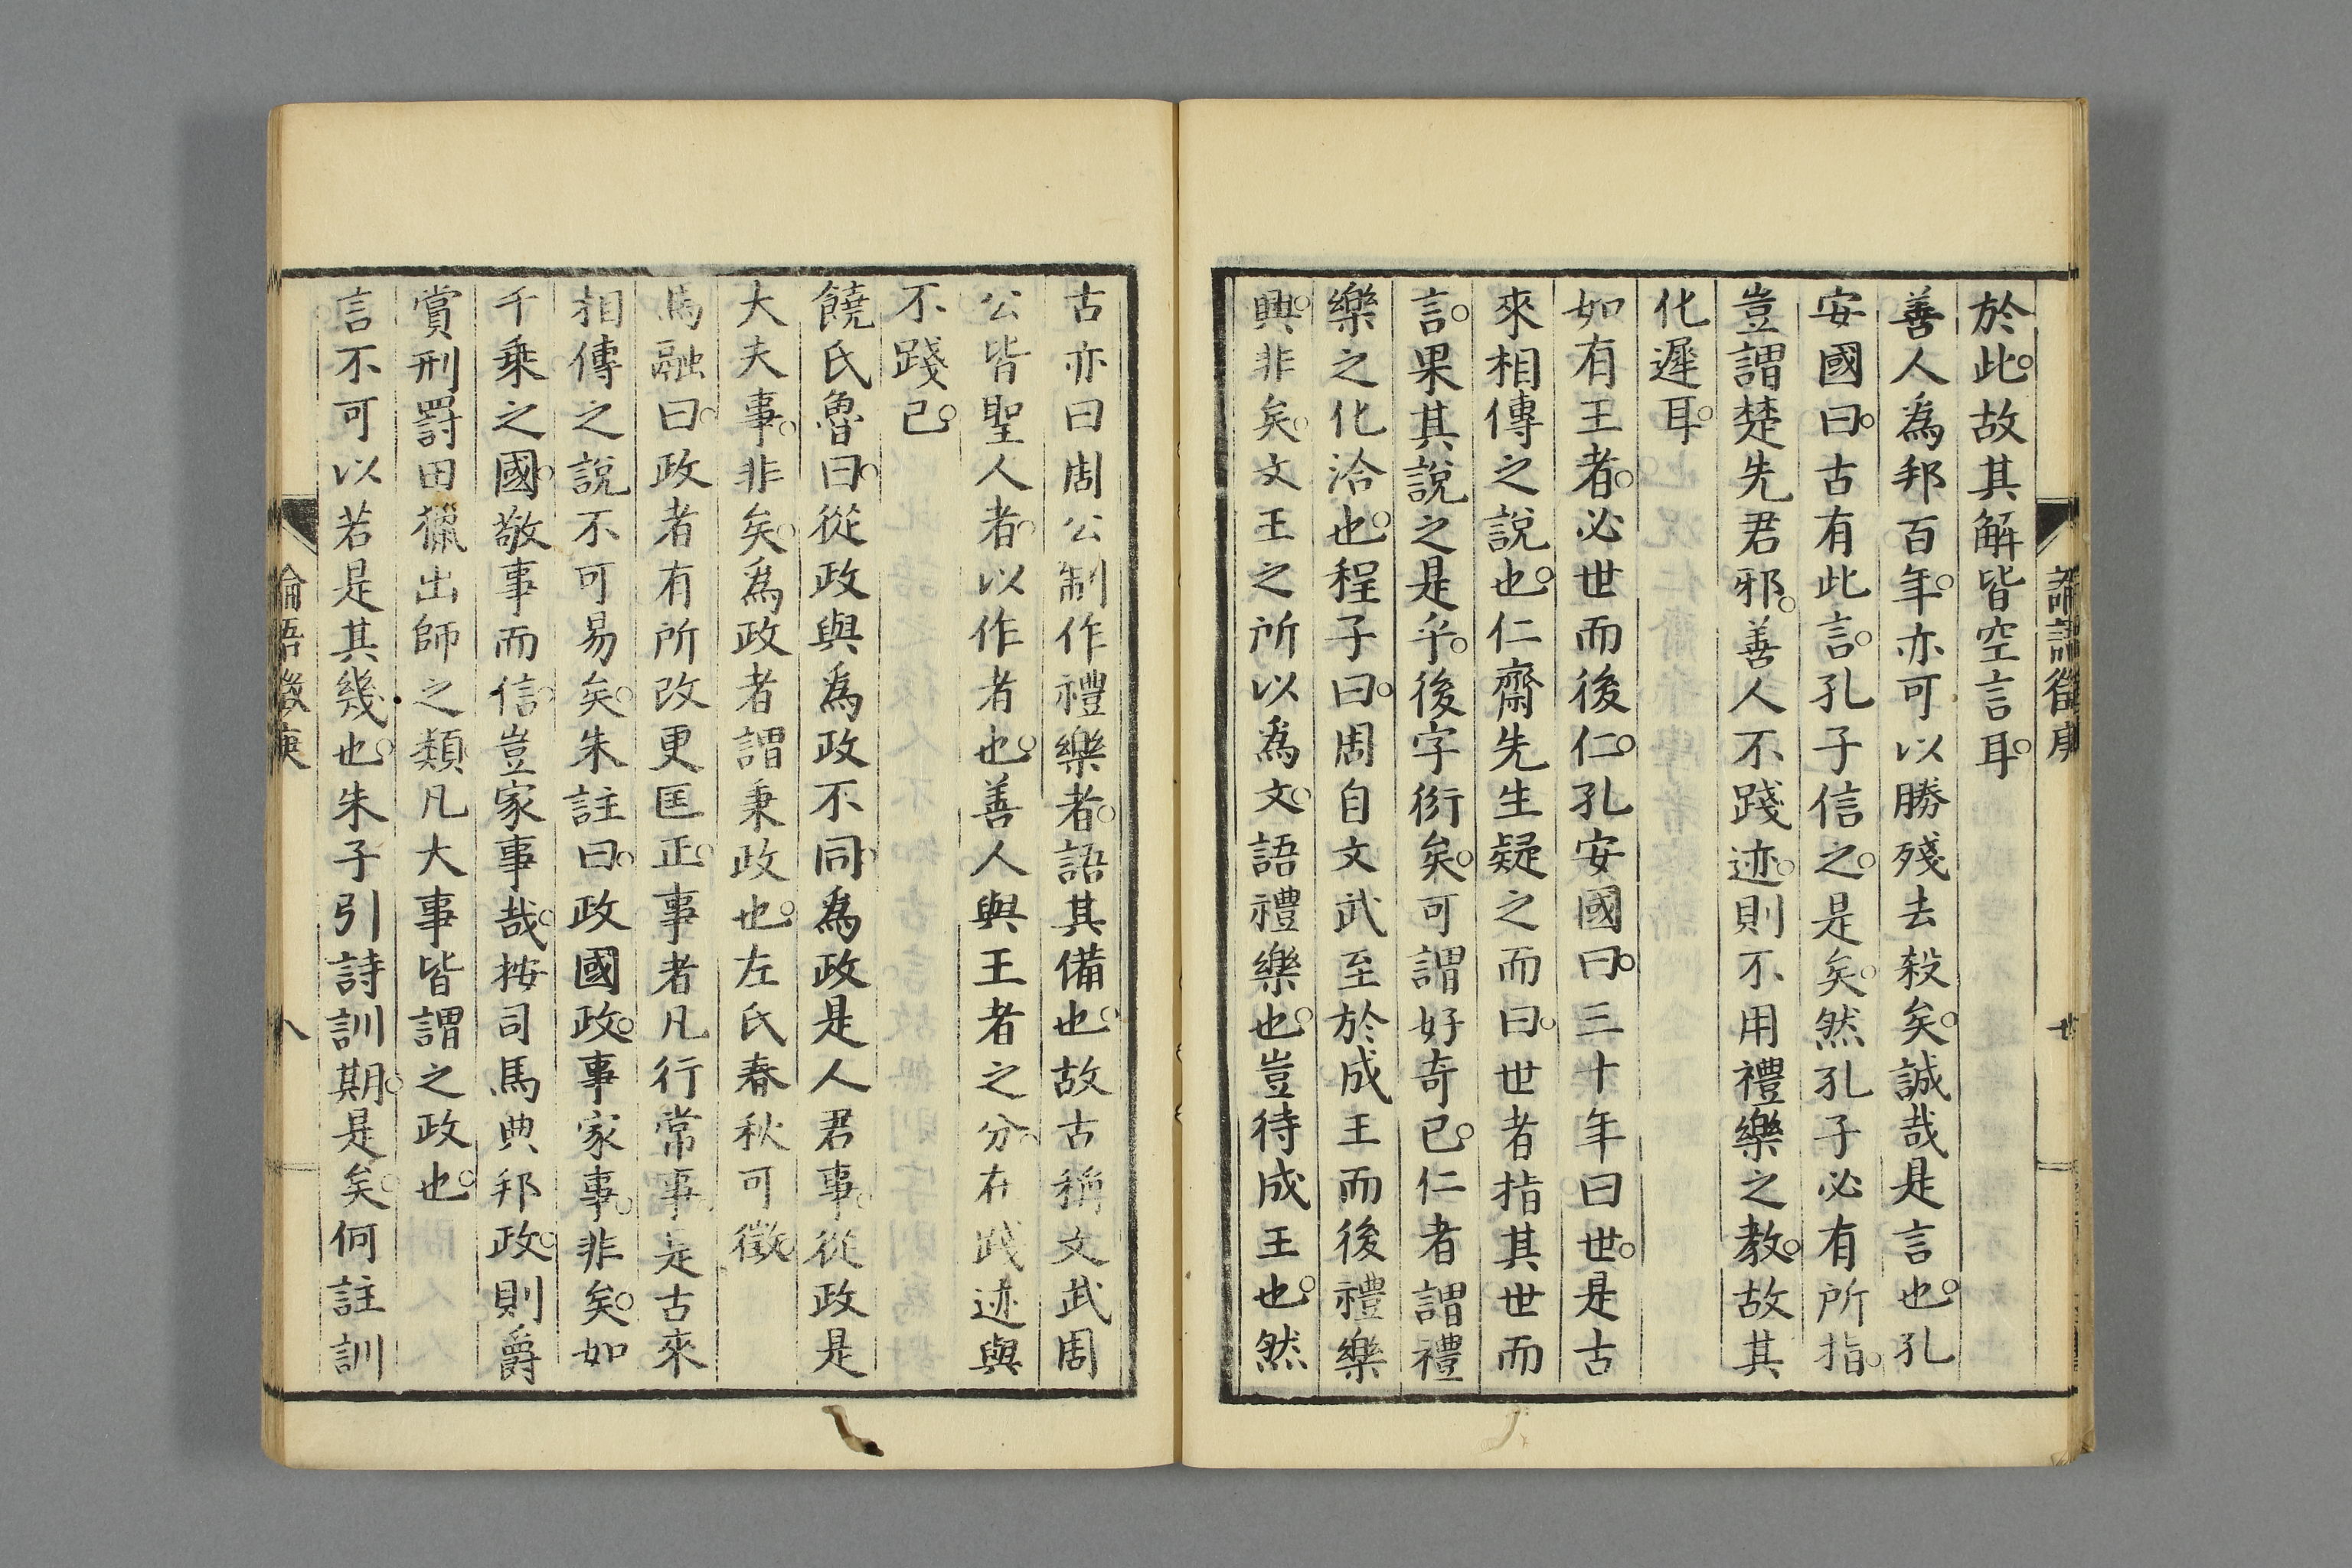 論語徵庚
於此。故其解皆空言耳。
善人為邦百年。亦可以勝殘去殺矣。誠哉是言也。孔
安國曰。古有此言。孔子信之。是矣。然孔子必有所指。
豈謂楚先君邪。善人不踐迹。則不用禮樂之教。故其
化遲耳。
如有王者。必世而後仁。孔安國曰。三十年曰世。是古
來相傳之說也。仁齋先生疑之而曰。世者指其世而
言。果其說之是乎。後字衍矣。可謂好奇已。仁者謂禮
樂之化洽也。程子曰。周自文武至於成王而後禮樂
興。非矣。文王之所以為文。語禮樂也。豈待成王也。然
古亦曰周公制作禮樂者。語其備也。故古稱文武周
公皆聖人者。以作者也。善人與王者之分。在踐迹與
不踐已。
饒氏魯曰。從政與為政不同。為政是人君事。從政是
大夫事。非矣。為政者謂秉政也。左氏春秋可徵。
馬融曰。政者有所改更匡正。事者凡行常事。是古來
相傳之說不可易矣。朱註曰。政國政。事家事。非矣。如
千乘之國。敬事而信。豈家事哉。按司馬典邦政。則爵
賞刑罰田獵出師之類。凡大事皆謂之政也。
言不可以若是其幾也。朱子引詩訓期。是矣。何註訓
論語徵庚
八